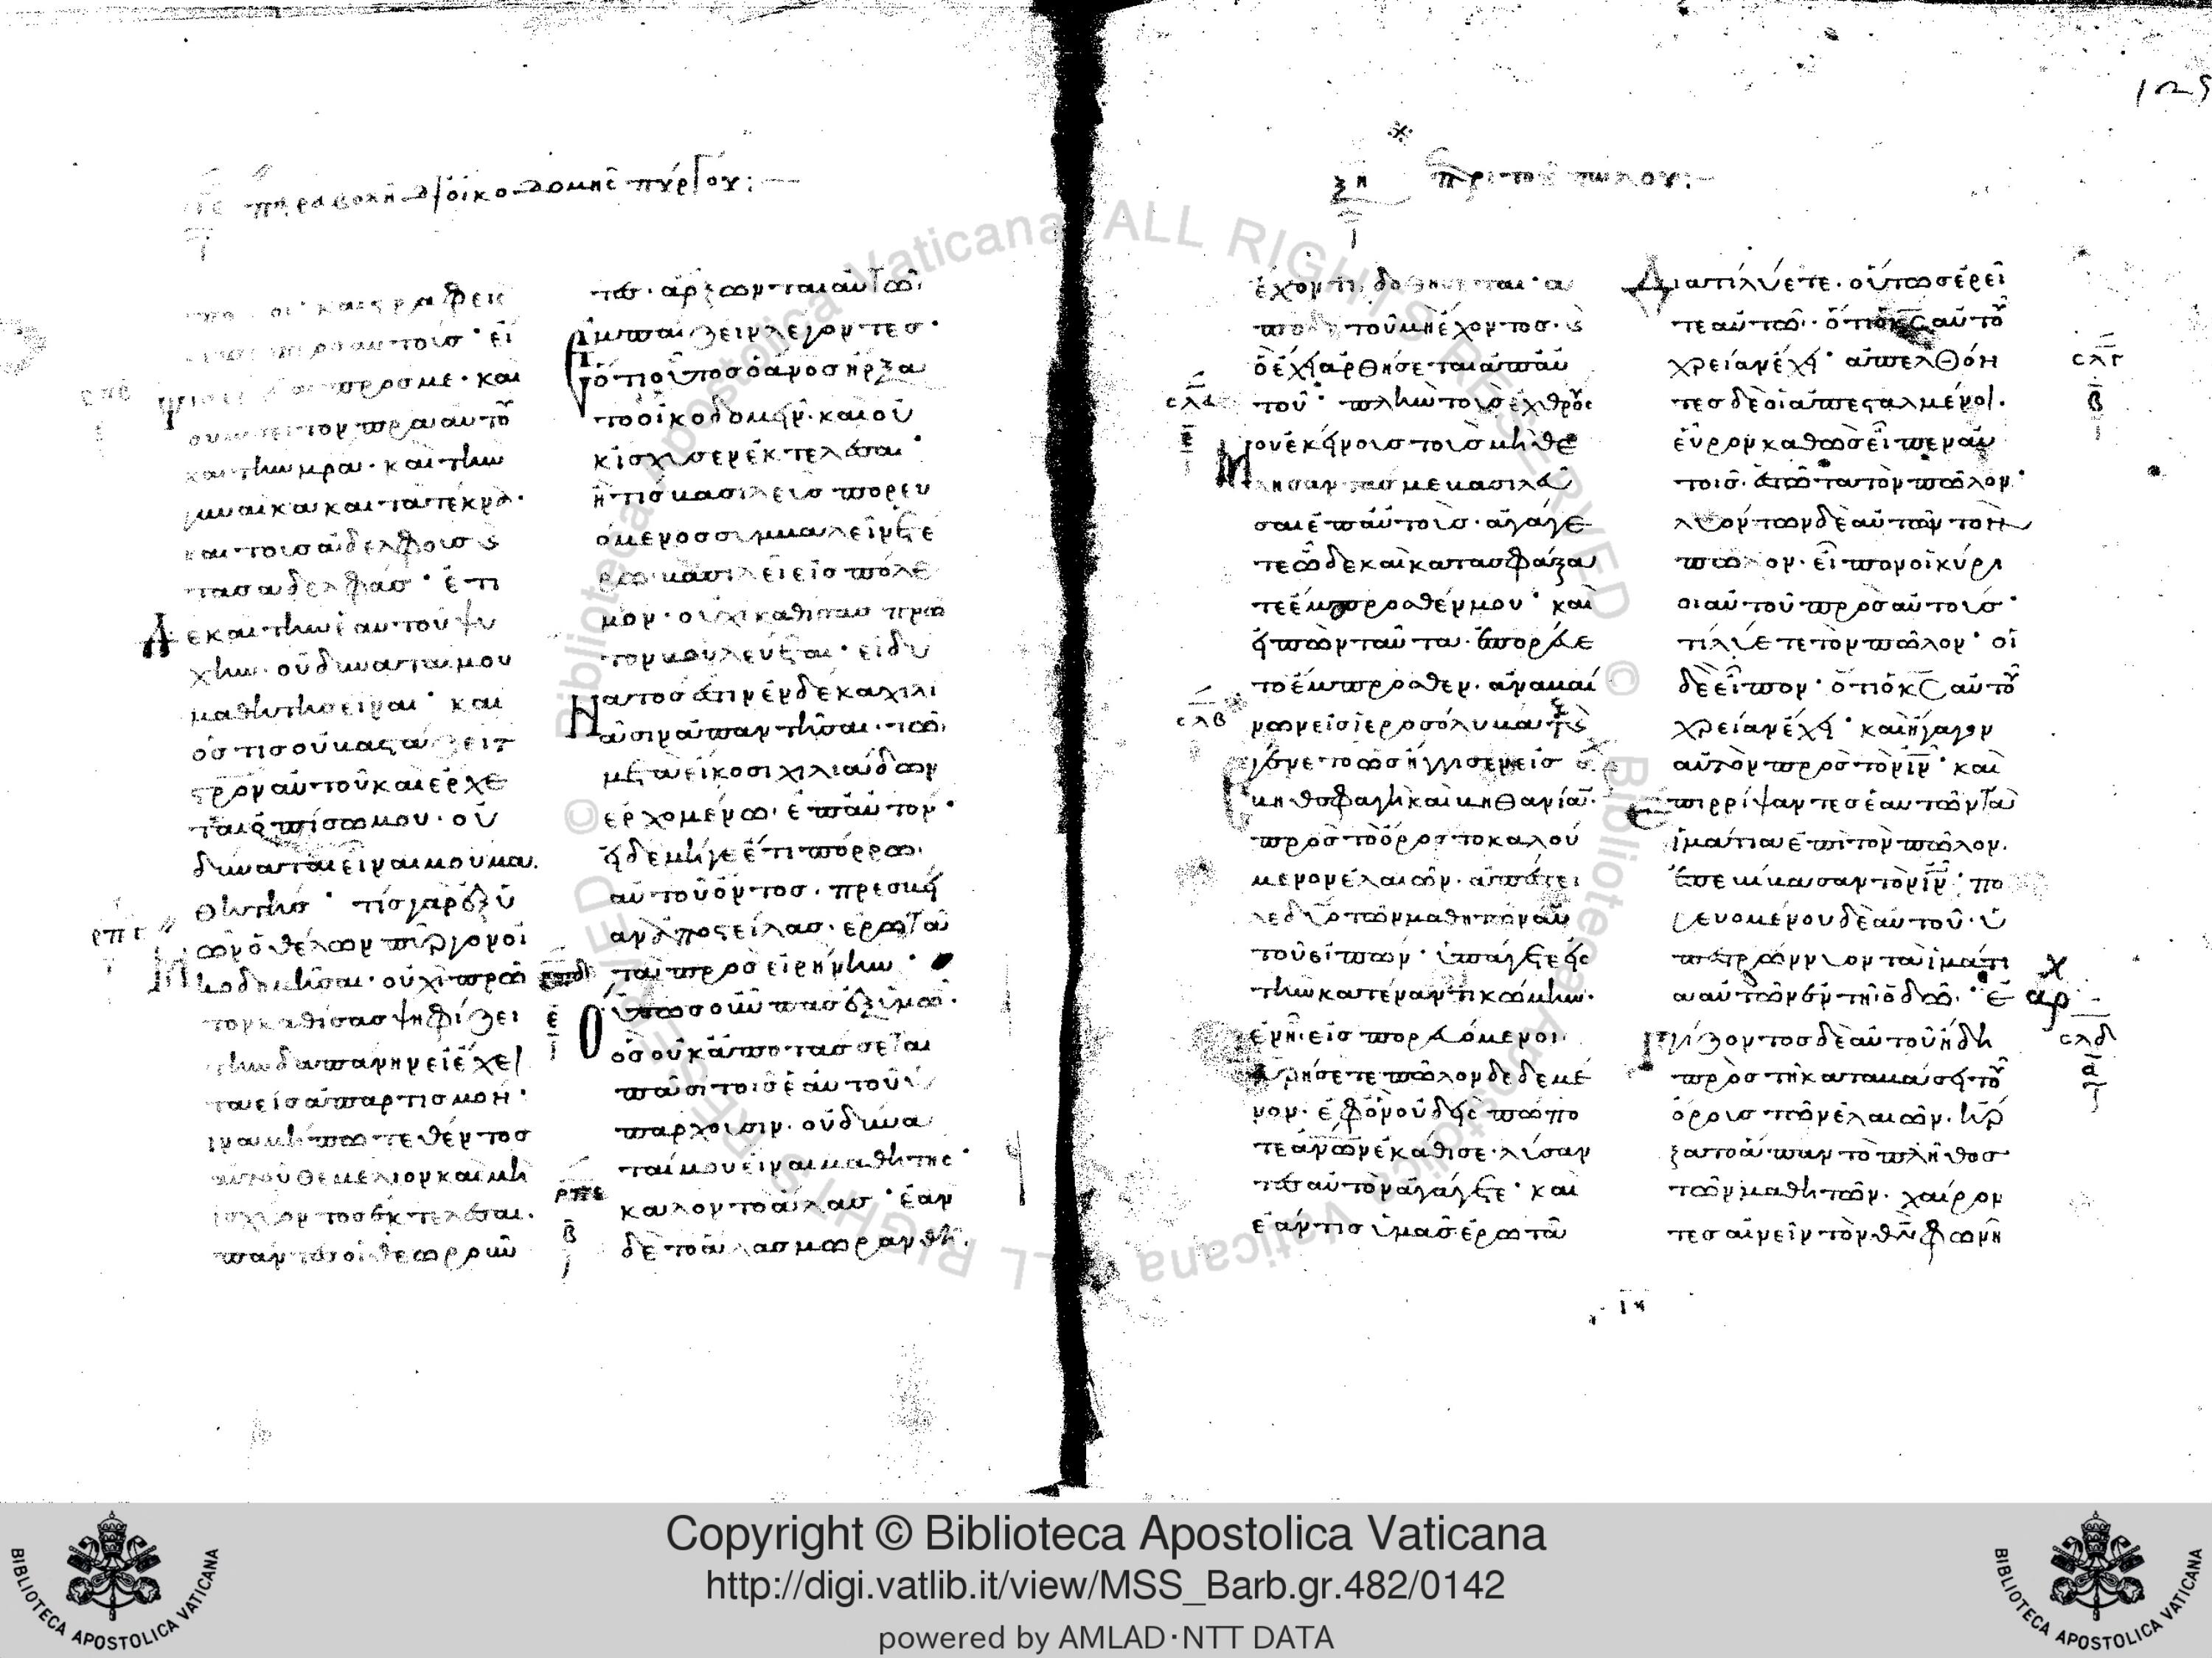 παραβολὴ οἰκοδομῆς πύργου:—
πολλοὶ· καὶ στραφεὶς
εἶπεν πρὸς αὐτούς· εἴ
τις ἔρχεται πρός με· καὶ
οὐ μισεῖ τὸν πρα αὐτοῦ
καὶ τὴν μρα· καὶ τὴν
γυναῖκα καὶ τὰ τέκνα·
καὶ τοὺς ἀδελφοὺς καὶ
τὰς ἀδελφάς· ἔτι
δὲ καὶ τὴν ἑαυτοῦ ψυ
χήν· οὐ δύναταί μου
μαθητὴς εἶναι· καὶ
ὅστις οὐ βαστάζει τ
στρὸν αὐτοῦ καὶ ἔρχε
ται ὀπίσω μου· οὐ
δύναται εἶναί μου μα
θητής· τίς γὰρ ἐξ ὑ
μῶν ὁ θέλων πύργον οἰ
κοδομῆσαι· οὐχὶ πρῶ
τον καθίσας ψηφίζει
τὴν δαπάνην εἰ ἔχει
τὰ εἰς ἀπαρτισμόν·
ἵνα μήποτε θέντος
αὐτοῦ θεμέλιον καὶ μὴ
ἰσχύοντος ἐκτελέσαι·
πάντες οἱ θεωροῦν
ρπε
τες· ἄρξωνται αὐτῶ
ἐμπαίζειν λέγοντες·
ὅτι οὗτος ὁ ανος ἤρξα
το οἰκοδομεῖν· καὶ οὐ
κ ἴσχυσεν ἐκτελέσαι·
ἢ τις βασιλεὺς πορευ
όμενος συμβαλεῖν ἑτέ
ρω βασιλεῖ εἰς πόλε
μον· οὐχὶ καθίσας πρῶ
τον βουλεύεται· εἰ δυ
νατός ἐστιν ἐν δέκα χιλι
άσιν ἀπαντῆσαι· τῶ
μετὰ εἴκοσι χιλιάδων
ἐρχομένω· ἐπ' αὐτόν·
εἰ δὲ μήγε ἔτι πόρρω
αὐτοῦ ὄντος· πρεσβεί
αν ἀποστείλας· ἐρωτᾶ
τὰ πρὸς εἰρήνην·
οὕτως οὖν πᾶς ἐξ ὑμῶν·
ὃς οὐκ ἀποτάσσεται
πᾶσι τοῖς ἑαυτοῦ ὑ
πάρχουσιν· οὐ δύνα
ταί μου εἶναι μαθητής·
καλὸν τὸ ἅλας· ἐὰν
δὲ τὸ ἅλας μωρανθῆ·
ξη περὶ τοῦ πώλου:—
ἔχοντι δοθήσεται· ἀ
πὸ δὲ τοῦ μὴ ἔχοντος· καὶ
ὃ ἔχει ἀρθήσεται ἀπ' αὐ
τοῦ· πλὴν τοὺς ἐχθρούς
μου ἐκείνους τοὺς μὴ θε
λήσαντάς με βασιλεῦ
σαι ἐπ' αὐτούς· ἀγάγε
τε ὧδε καὶ κατασφάξα
τε ἔμπροσθέν μου· καὶ
εἰπὼν ταῦτα· ἐπορεύε
το ἔμπροσθεν· ἀναβαί
νων εἰς ἱεροσόλυμα· καὶ
ἐγένετο ὡς ἤγγισεν εἰς
βηθσφαγὴ καὶ βηθανίαν·
πρὸς τὸ ὄρος τὸ καλού
μενον ἐλαιῶν· ἀπέστει
λε δύο τῶν μαθητῶν αὐ
τοῦ εἰπών· ὑπάγετε εἰς
τὴν κατέναντι κώμην·
ἐν ῇ εἰσπορευόμενοι
εὑρήσετε πῶλον δεδεμέ
νον· ἐφ' ὃν οὐδεὶς πώπο
τε ανων ἐκάθισε· λύσαν
τες αὐτὸν ἀγάγετε· καὶ
ἐάν τις ὑμᾶς ἐρωτᾶ
σλα
σλβ
διατί λύετε· οὕτως ἐρεῖ
τε αὐτῶ· ὅτι ὁ κς αὐτοῦ
χρείαν ἔχει· ἀπελθόν
τες δὲ οἱ ἀπεσταλμένοι·
εὗρον καθὼς εἶπεν αὐ
τοῖς· ἑστῶτα τὸν πῶλον·
λυόντων δὲ αὐτῶν τὸν
πῶλον· εἶπον οἱ κύρι
οι αὐτοῦ πρὸς αὐτούς·
τί λύετε τὸν πῶλον· οἱ
δὲ εἶπον· ὅτι ὁ κς αὐτοῦ
χρείαν ἔχει· καὶ ἤγαγον
αὐτὸν πρὸς τὸν ιν· καὶ
ἐπιρρίψαντες ἑαυτῶν τὰ
ἱμάτια ἐπὶ τὸν πῶλον·
ἐπεβίβασαν τὸν ιν· πο
ρευομένου δὲ αὐτοῦ· ὑ
πεστρώννυον τὰ ἱμάτι
α αὐτῶν ἐν τῆ ὁδῶ· ἐγ
γίζοντος δὲ αὐτοῦ ἤδη
πρὸς τῆ καταβάσει τοῦ
ὄρους τῶν ἐλαιῶν· ἤρ
ξατο ἅπαν τὸ πλῆθος
τῶν μαθητῶν· χαίρον
τες αἰνεῖν τὸν θν φωνῆ
σλγ
αρ
σλδ
Copyright © Biblioteca Apostolica Vaticana
http://digi.vatlib.it/view/MSS_Barb.gr.482/0142
powered by AMLAD·NTT DATA
BIBLIOTECA APOSTOLICA VATICANA
BIBLIOTECA APOSTOLICA VATICANA